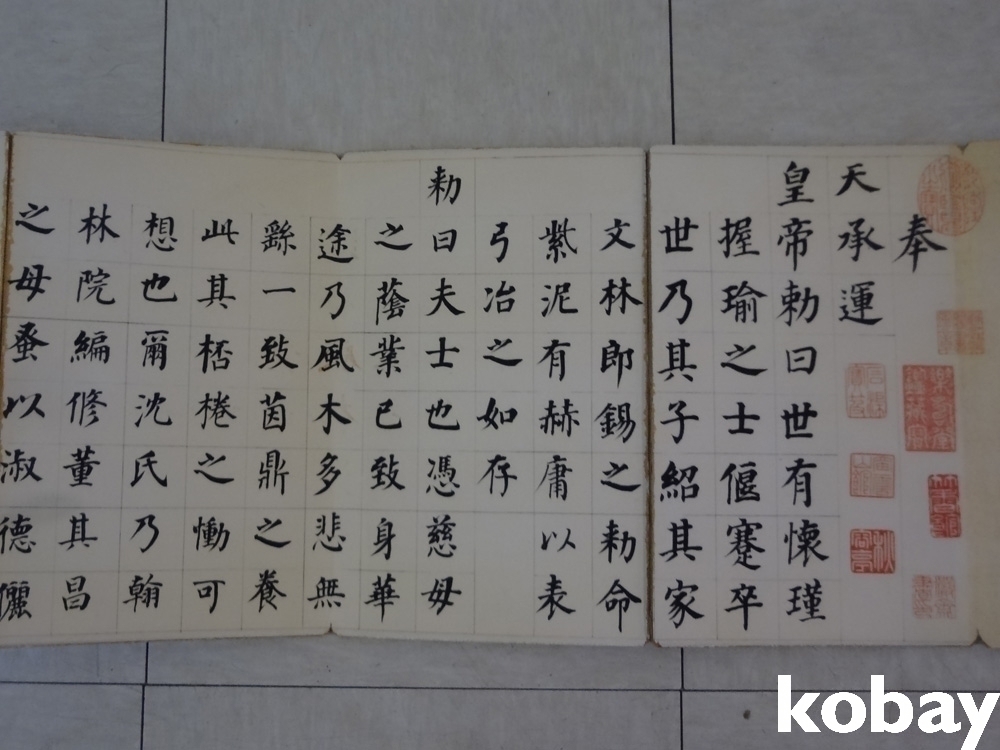 奉
天承運
皇帝勅曰世有懷瑾
握瑜之士偃蹇卒
世乃其子紹其家
文林郎錫之勅命
紫泥有赫庸以表
弓冶之如存
勅曰夫士也憑慈母
之蔭業已致身華
途乃風木多悲無
繇一致茵鼎之養
此其栝棬之慟可
想也爾沈氏乃翰
林院編修董其昌
之母蚤以淑德儷
kobay